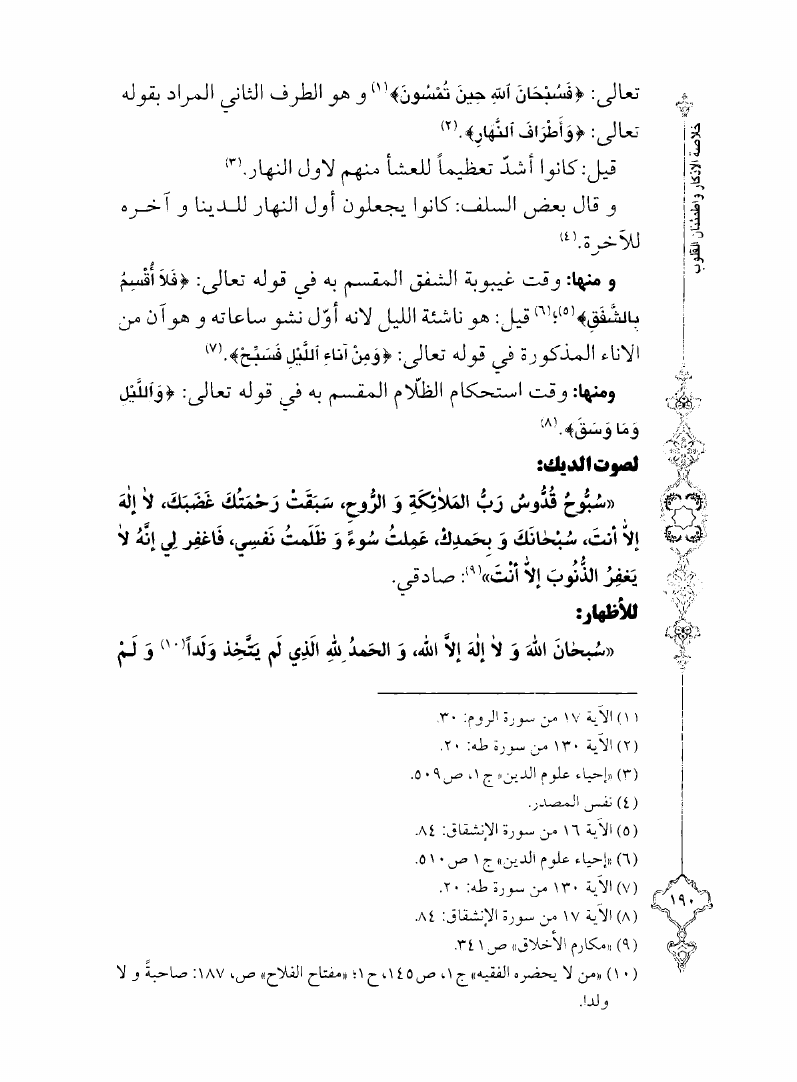 تعالى: ﴿فَسُبْحَانَ ٱللهِ حِينَ تُمْسُونَ﴾(١) و هو الطرف الثاني المراد بقوله
تعالى: ﴿وَأَطْرَافَ ٱلنَّهَارِ﴾.(٢)
قيل: كانوا أشدّ تعظيماً للعشأ منهم لاول النهار.(٣)
و قال بعض السلف: كانوا يجعلون أول النهار للدينا و آخره
للآخرة.(٤)
و منها: وقت غيبوبة الشفق المقسم به في قوله تعالى: ﴿فَلاَ أُقْسِمُ
بِالشَّفَقِ﴾(٥)؛(٦) قيل: هو ناشئة الليل لانه أوّل نشو ساعاته و هو آن من
الاناء المذكورة في قوله تعالى: ﴿وَمِنْ آنَاءِ ٱللَّيْلِ فَسَبِّحْ﴾.(٧)
ومنها: وقت استحكام الظّلام المقسم به في قوله تعالى: ﴿وَٱللَّيْلِ
وَمَا وَسَقَ﴾.(٨)
لصوت الديك:
«سُبُّوحُ قُدُّوسُ رَبُّ المَلاٰئِكَةِ وَ الرُّوحِ، سَبَقَتْ رَحْمَتُكَ غَضَبَكَ، لاٰ إلٰهَ
إلاّٰ أنتَ، سُبْحٰانَكَ وَ بِحَمدِكْ، عَمِلتُ سُوءً وَ ظَلَمتُ نَفسِي، فَاغفِر لِي إنَّهُ لاٰ
يَغفِرُ الذُّنُوبَ إلاّٰ أنْتَ»(٩): صادقي.
للأظهار:
«سُبحٰانَ اللهَ وَ لاٰ إلٰهَ إلاَّ الله، وَ الحَمدُ لِلهِ الَذِي لَم يَتَّخِذ وَلَداً(١٠) وَ لَمْ
(١) الآية ١٧ من سورة الروم: ٣٠.
(٢) الآية ١٣٠ من سورة طه: ٢٠.
(٣) «إحياء علوم الدين» ج ١، ص ٥٠٩.
(٤) نفس المصدر.
(٥) الآية ١٦ من سورة الإنشقاق: ٨٤.
(٦) «إحياء علوم الدين» ج ١ ص ٥١٠.
(٧) الآية ١٣٠ من سورة طه: ٢٠.
(٨) الآية ١٧ من سورة الإنشقاق: ٨٤.
(٩) «مكارم الأخلاق» ص ٣٤١.
(١٠) «من لا يحضره الفقيه» ج ١، ص ١٤٥، ح ١؛ «مفتاح الفلاح» ص، ١٨٧: صاحبةً و لا
ولدا.
خلاصة الاذكار واطمئنان القلوب
١٩٠